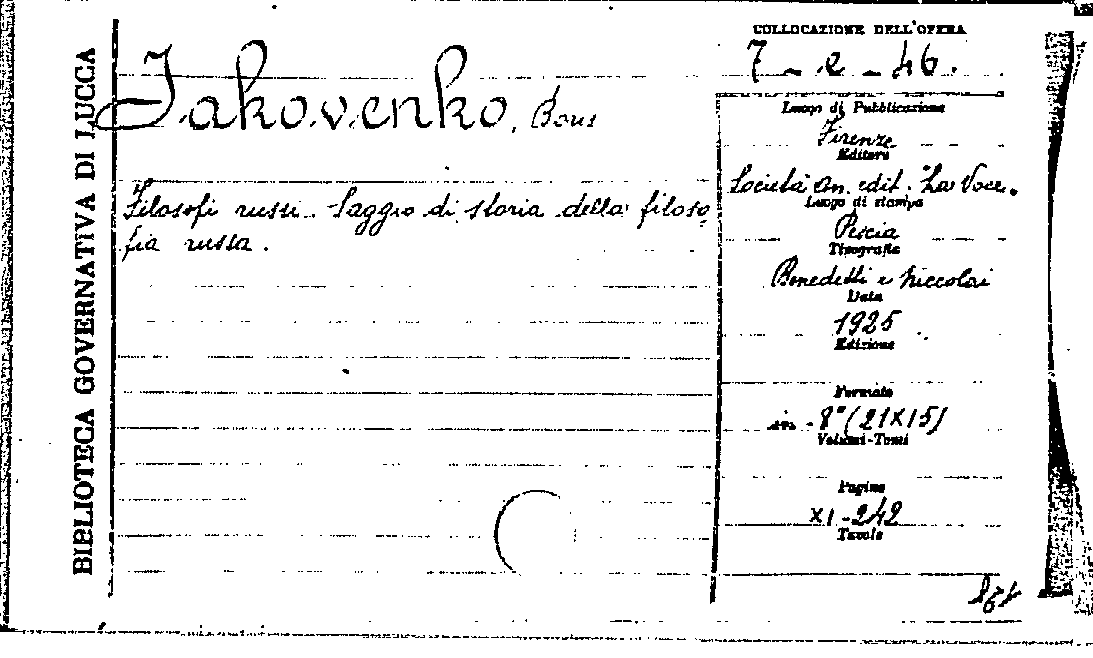 BIBLIOTECA GOVERNATIVA DI LUCCA
Jakovenko, Boris
Filosofi russi. Saggio di storia della filoso-
fia russa.
COLLOCAZIONE DELL'OPERA
7 - e - 46.
Luogo di Pubblicazione
Firenze
Editore
Società an. edit. La Voce.
Luogo di stampa
Pescia
Tipografia
Benedetti e Niccolai
Data
1925
Edizione
Formato
in - 8° (21x15)
Volumi-Tomi
Pagine
XI - 242
Tavole